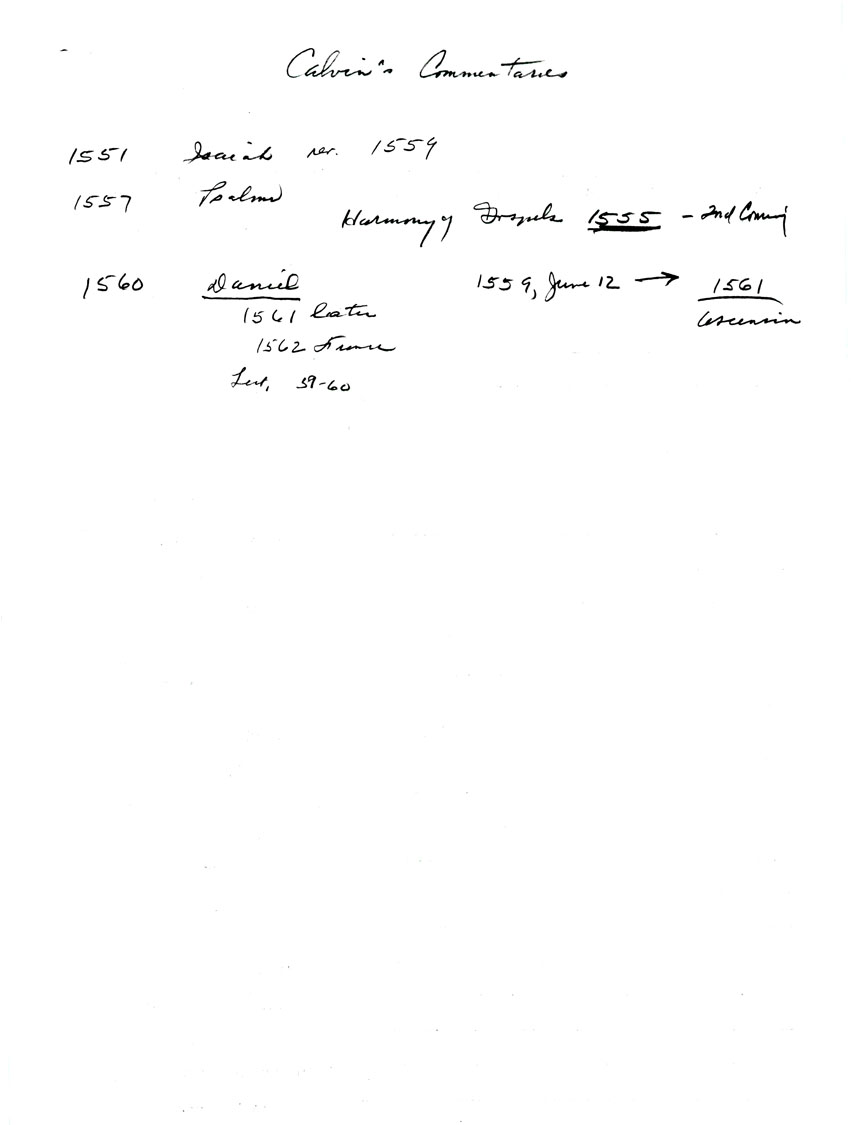 Calvin's Commentaries
1551 Isaiah rev. 1559
1557 Psalms
Harmony of Gospels 1555 - 2nd Coming
1560 Daniel 1559, June 12 → 1561
1561 Latin Ascension
1562 France
Lect. 59-60